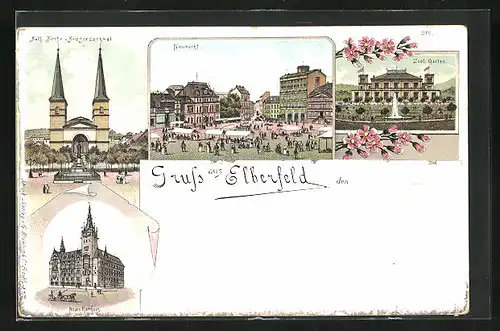 Kath. Kirche u. Kriegerdenkmal
Neumarkt.
Zool. Garten.
Gruss aus Elberfeld
den
Neues Rathaus